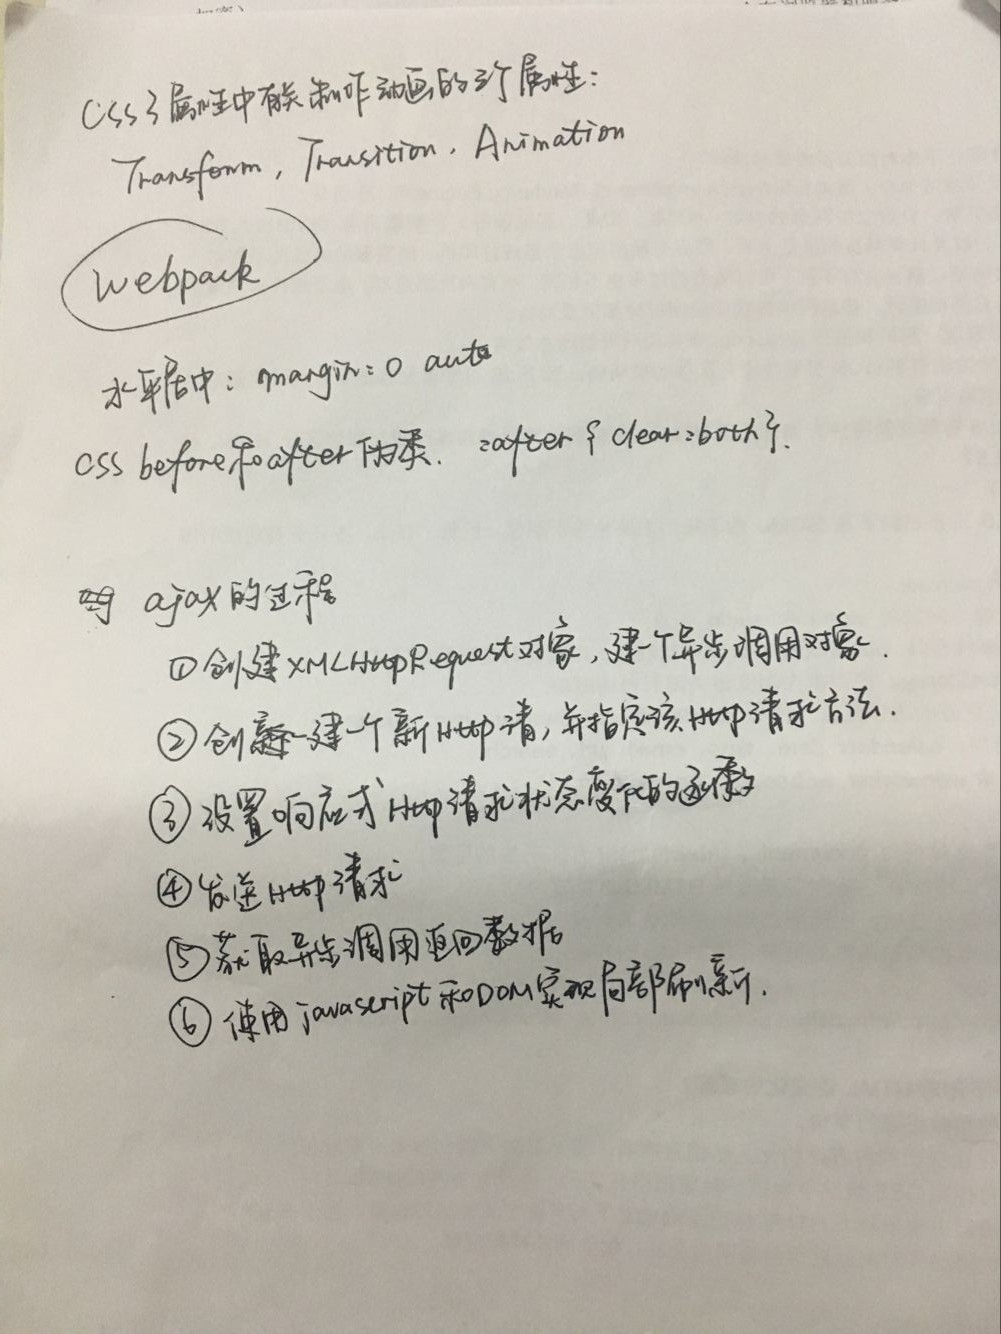 CSS3属性中有关制作动画的三个属性：
Transform, Transition, Animation
webpack
水平居中：margin:0 auto
CSS before和after伪类. :after{clear:both}.
ajax的过程
①创建XMLHttpRequest对象，建一个异步调用对象.
②创建一个新Http请，并指定该Http请求方法.
③设置响应式Http请求状态变化的函数
④发送Http请求
⑤获取异步调用返回数据
⑥使用javascript和DOM实现局部刷新.